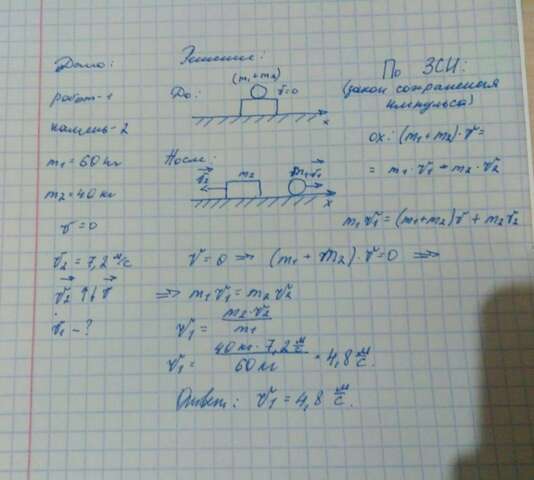 Дано:
робот-1
камень-2
m₁ = 60 кг
m₂ = 40 кг
v = 0
v₂ = 7,2 м/с
v₂ ↑↓ v
v₁ - ?
Решение:
До:
(m₁+m₂)
v=0
x
После:
v₂
m₂
m₁
v₁
x
По ЗСИ:
(закон сохранения
импульса)
ox: (m₁+m₂)·v =
= m₁·v₁ - m₂·v₂
m₁v₁ = (m₁+m₂)v + m₂v₂
v = 0 => (m₁ + m₂)·v = 0 =>
=> m₁v₁ = m₂v₂
v₁ = m₂·v₂ / m₁
v₁ = 40 кг · 7,2 м/с / 60 кг = 4,8 м/с.
Ответ: v₁ = 4,8 м/с.